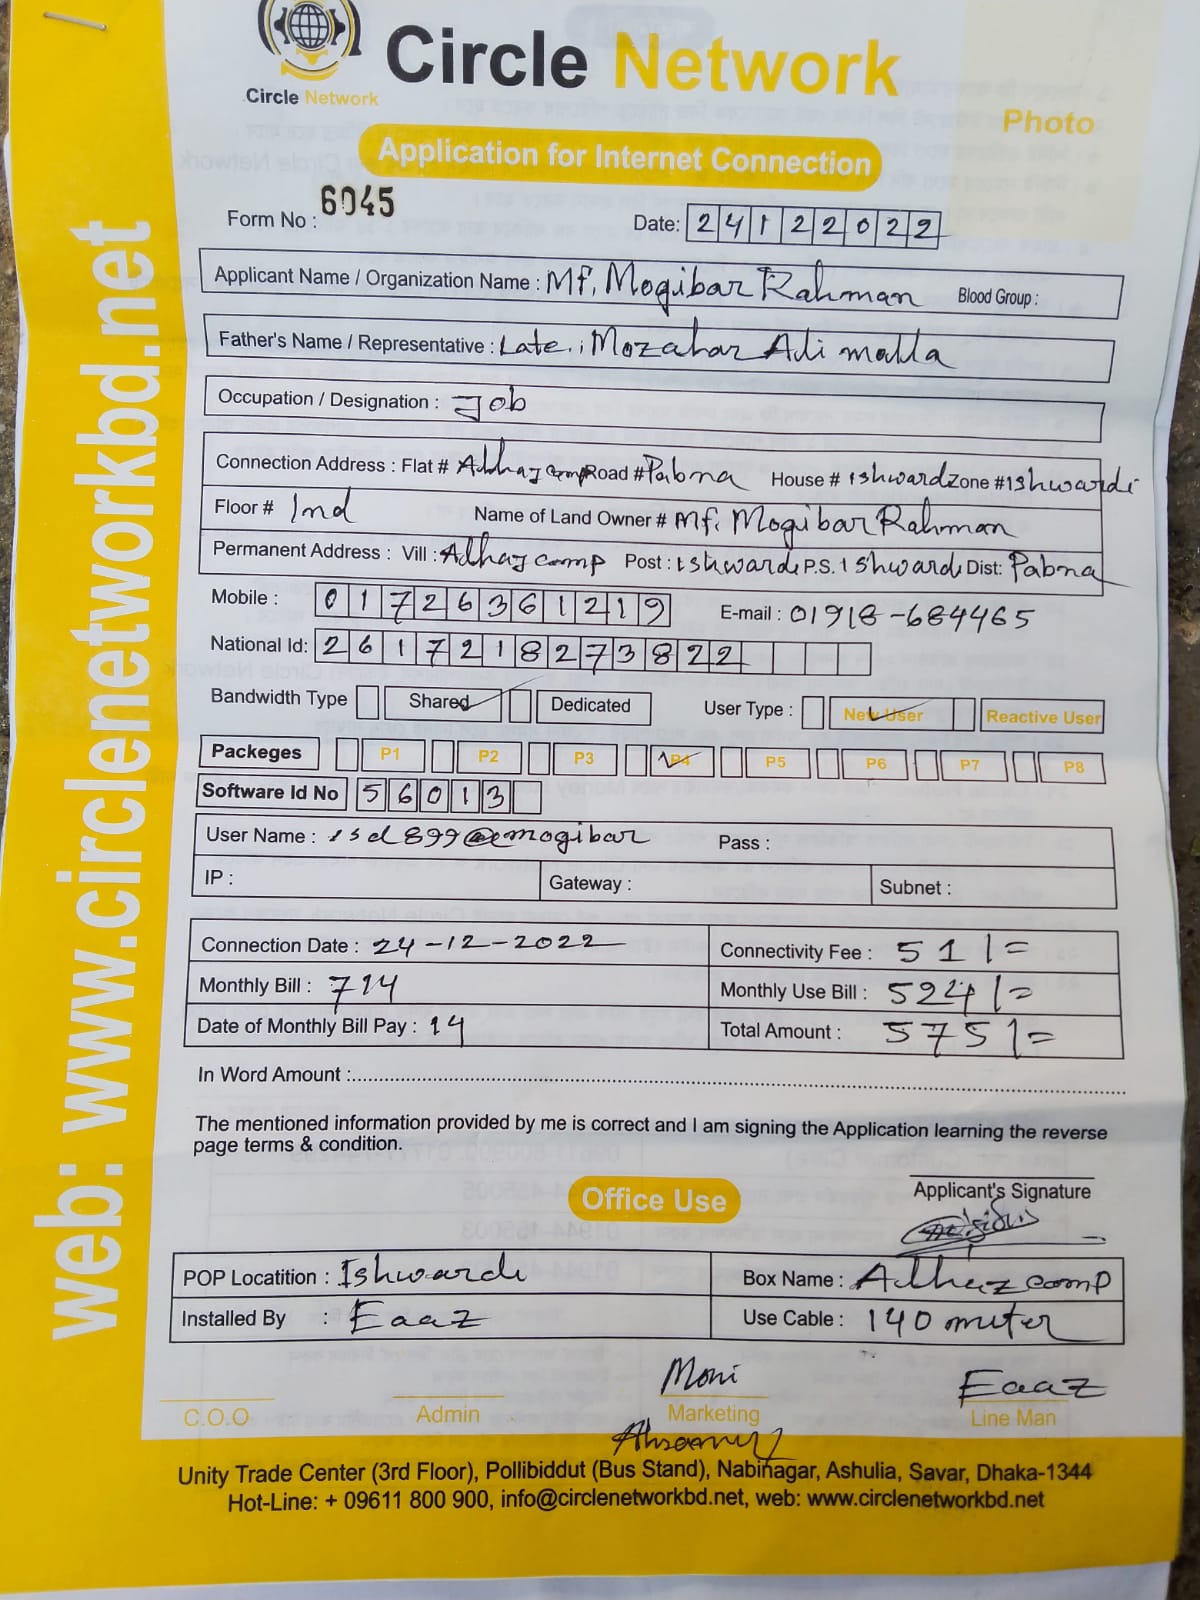 Circle Network
Circle Network
Photo
Application for Internet Connection
Form No : 6045
Date: 24122022
Applicant Name / Organization Name : Mf. Mogibar Rahman Blood Group :
Father's Name / Representative : Late. : Mozahar Ali malla
Occupation / Designation : Job
Connection Address : Flat # Alhaj comp Road # Pabna House # Ishward Zone # Ishwardi
Floor # 1nd Name of Land Owner # Mf. Mogibar Rahman
Permanent Address : Vill : Alhaj comp Post : Ishwardi P.S. Ishwardi Dist: Pabna
Mobile : 01726361219 E-mail : 01918-684465
National Id: 2617218273822
Bandwidth Type Shared Dedicated User Type : New User Reactive User
Packeges P1 P2 P3 P4 P5 P6 P7 P8
Software Id No 56013
User Name : isd899@mogibar Pass :
IP : Gateway : Subnet :
Connection Date : 24-12-2022 Connectivity Fee : 511=
Monthly Bill : 714 Monthly Use Bill : 5241=
Date of Monthly Bill Pay : 14 Total Amount : 5751=
In Word Amount :
The mentioned information provided by me is correct and I am signing the Application learning the reverse
page terms & condition.
Applicant's Signature
Office Use
POP Locatition : Ishwardi Box Name : Alhaz comp
Installed By : Eaaz Use Cable : 140 muter
Moni Eaaz
C.O.O Admin Marketing Line Man
Unity Trade Center (3rd Floor), Pollibiddut (Bus Stand), Nabinagar, Ashulia, Savar, Dhaka-1344
Hot-Line: + 09611 800 900, info@circlenetworkbd.net, web: www.circlenetworkbd.net
web: www.circlenetworkbd.net